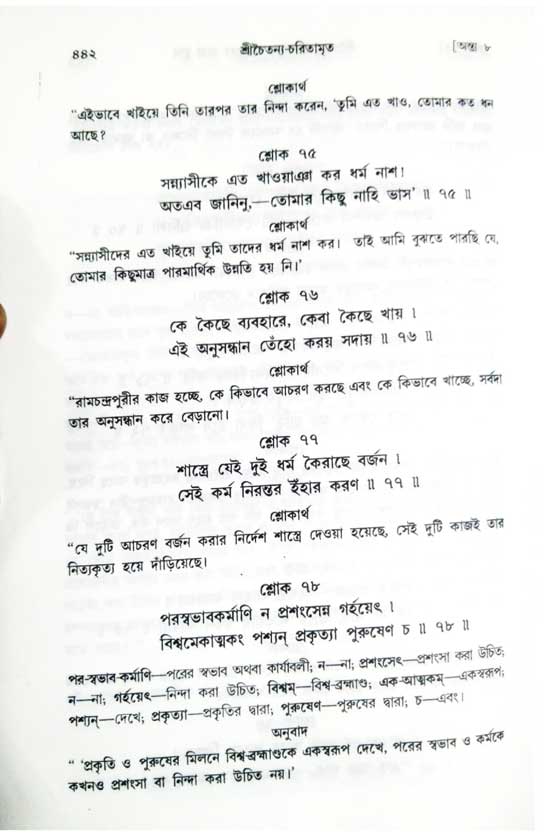 ৪৪২
শ্রীচৈতন্য-চরিতামৃত
[অন্ত্য ৮
শ্লোকার্থ
“এইভাবে খাইয়ে তিনি তারপর তার নিন্দা করেন, ‘তুমি এত খাও, তোমার কত ধন
আছে?
শ্লোক ৭৫
সন্ন্যাসীকে এত খাওয়াঞা কর ধর্ম নাশ!
অতএব জানিনু,—তোমার কিছু নাহি ভাস’ ॥ ৭৫ ॥
শ্লোকার্থ
“সন্ন্যাসীদের এত খাইয়ে তুমি তাদের ধর্ম নাশ কর। তাই আমি বুঝতে পারছি যে,
তোমার কিছুমাত্র পারমার্থিক উন্নতি হয় নি।’
শ্লোক ৭৬
কে কৈছে ব্যবহারে, কেবা কৈছে খায় ।
এই অনুসন্ধান তেঁহো করয় সদায় ॥ ৭৬ ॥
শ্লোকার্থ
“রামচন্দ্রপুরীর কাজ হচ্ছে, কে কিভাবে আচরণ করছে এবং কে কিভাবে খাচ্ছে, সর্বদা
তার অনুসন্ধান করে বেড়ানো।
শ্লোক ৭৭
শাস্ত্রে যেই দুই ধর্ম কৈরাছে বর্জন ।
সেই কর্ম নিরন্তর ইঁহার করণ ॥ ৭৭ ॥
শ্লোকার্থ
“যে দুটি আচরণ বর্জন করার নির্দেশ শাস্ত্রে দেওয়া হয়েছে, সেই দুটি কাজই তার
নিত্যকৃত্য হয়ে দাঁড়িয়েছে।
শ্লোক ৭৮
পরস্বভাবকর্মাণি ন প্রশংসেন্ন গর্হয়েৎ ।
বিশ্বমেকাত্মকং পশ্যন্ প্রকৃত্যা পুরুষেণ চ ॥ ৭৮ ॥
পর-স্বভাব-কর্মাণি—পরের স্বভাব অথবা কার্যাবলী; ন—না; প্রশংসেৎ—প্রশংসা করা উচিত;
ন—না; গর্হয়েৎ—নিন্দা করা উচিত; বিশ্বম্—বিশ্ব-ব্রহ্মাণ্ড; এক-আত্মকম্—একস্বরূপ;
পশ্যন্—দেখে; প্রকৃত্যা—প্রকৃতির দ্বারা; পুরুষেণ—পুরুষের দ্বারা; চ—এবং।
অনুবাদ
“ ‘প্রকৃতি ও পুরুষের মিলনে বিশ্ব-ব্রহ্মাণ্ডকে একস্বরূপ দেখে, পরের স্বভাব ও কর্মকে
কখনও প্রশংসা বা নিন্দা করা উচিত নয়।’